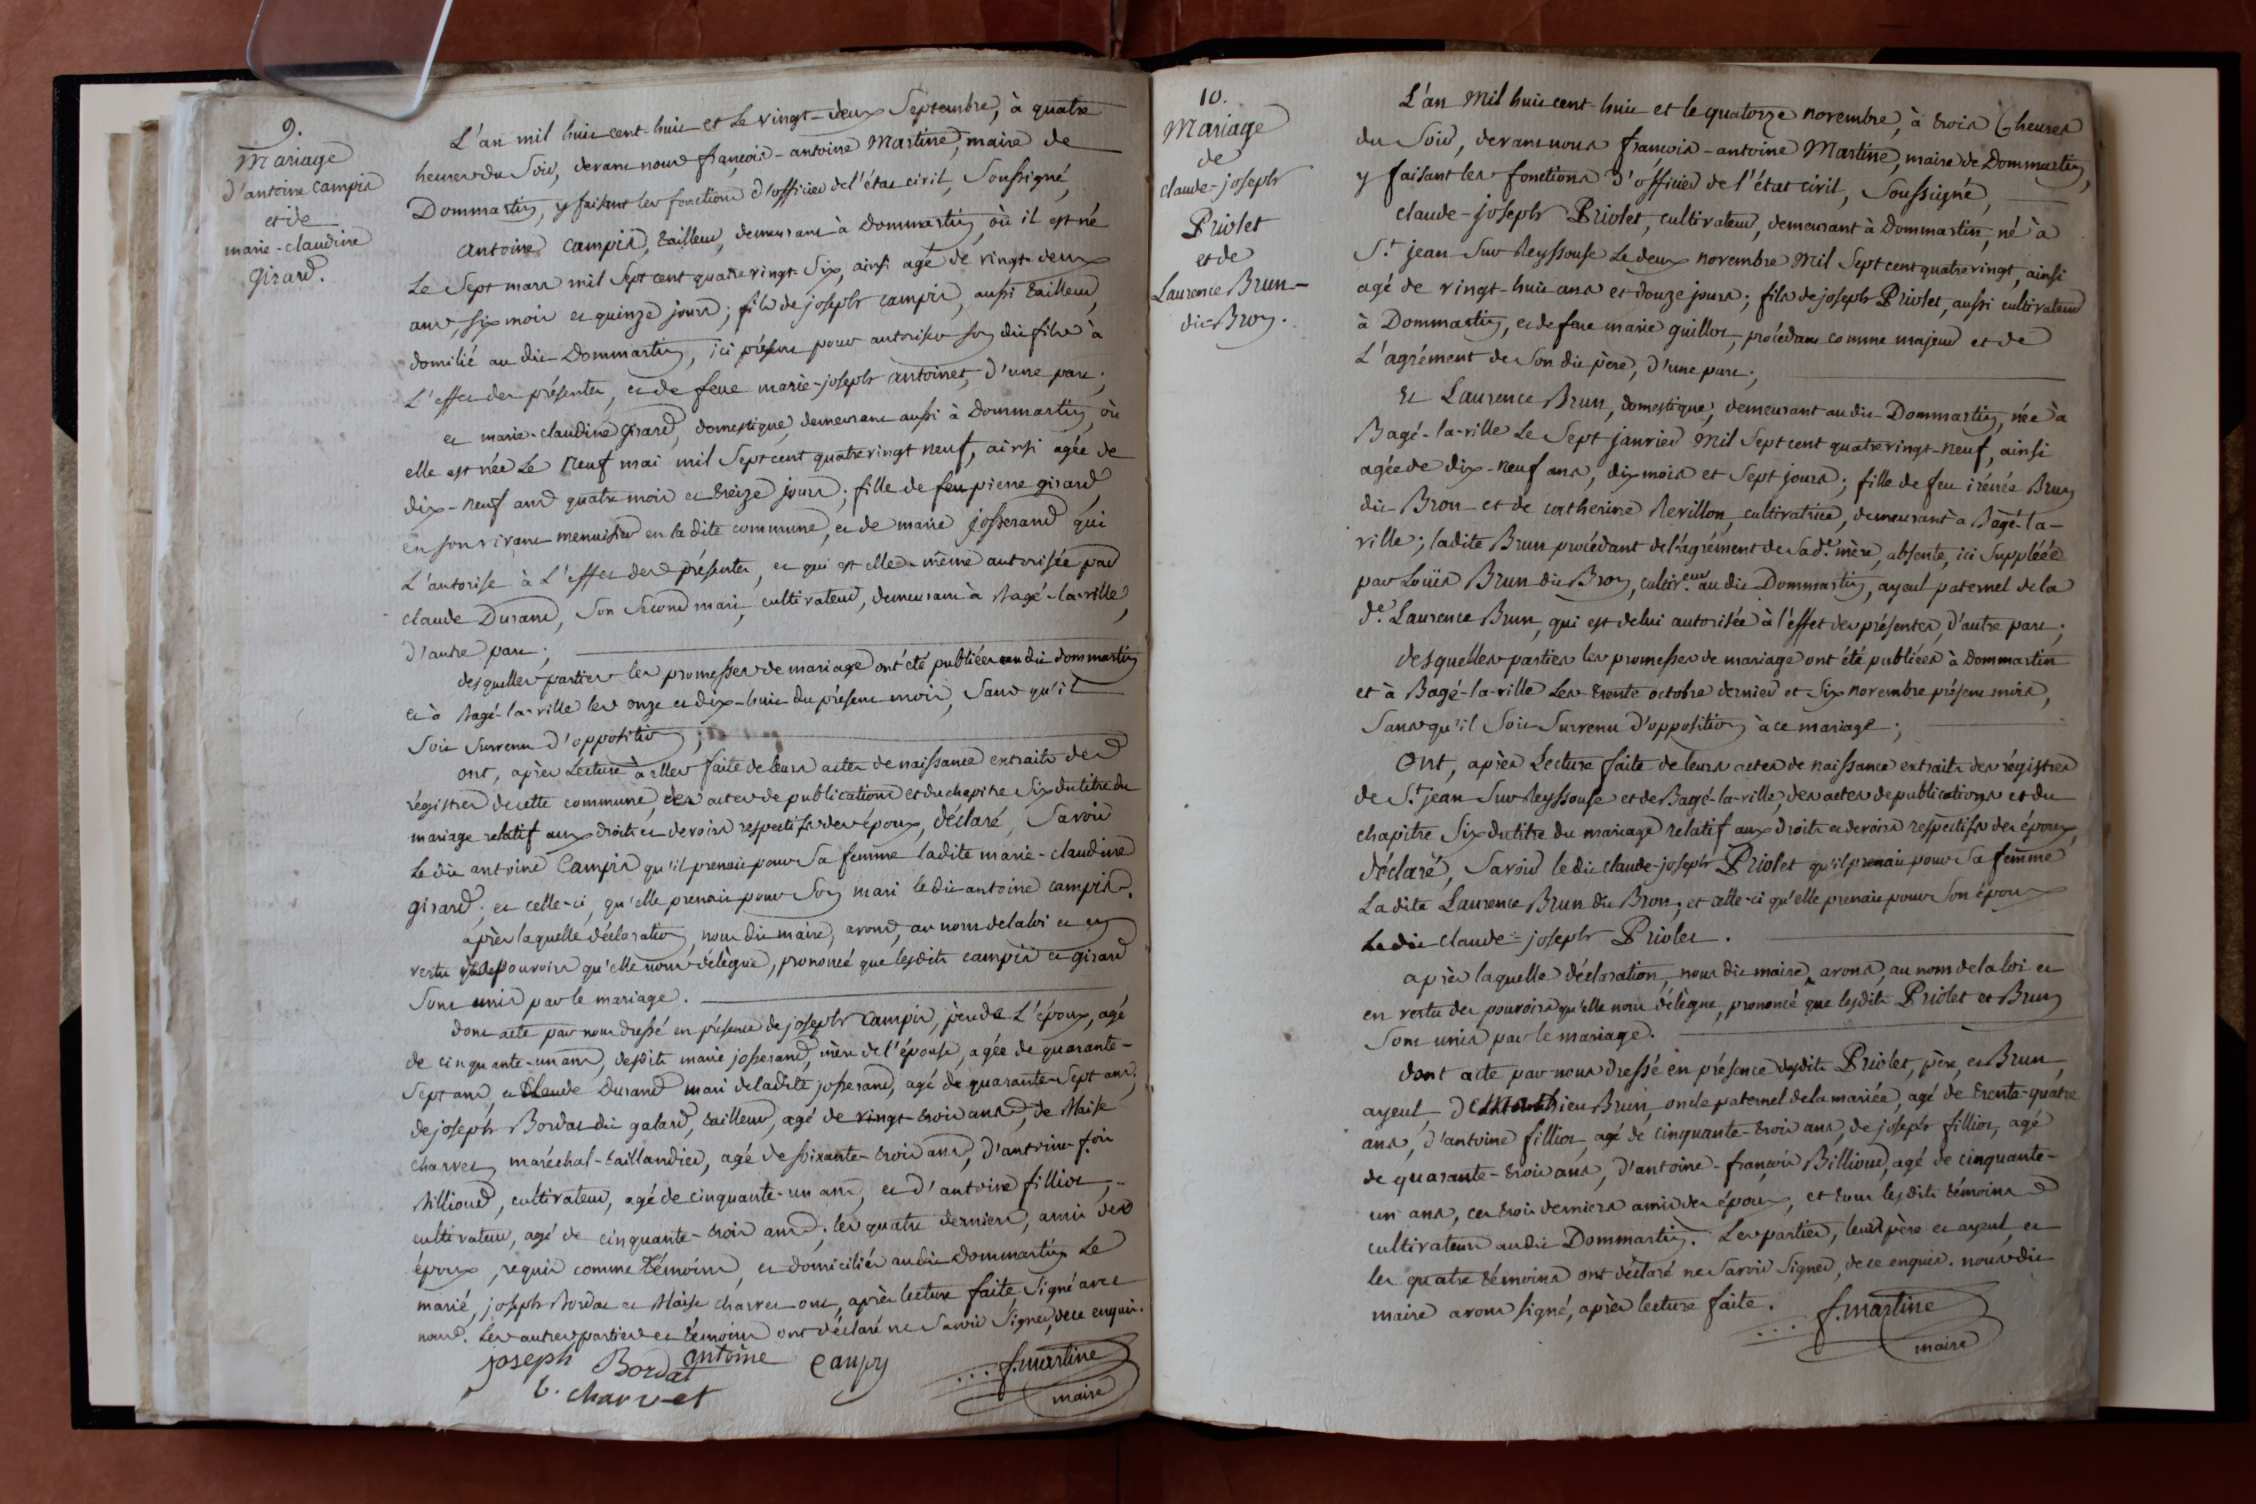 9.
Mariage
d'antoine campis
et de
marie-claudine
Girard.
L'an mil huit cent-huit et Le vingt-deux Septembre, à quatre
heures du Soir, devant nous françois-antoine Martine, maire de
Dommartin, y faisant les fonctions d'officier de l'état civil, Soussigné,
antoine campis, tailleur, demeurant à Dommartin, où il est né
Le Sept mars mil Sept cent quatre vingt-Six, ainsi agé de vingt-deux
ans, six mois et quinze jours; fils de joseph campis, aussi tailleur,
domilié au dit Dommartin, ici présent pour autoriser son dit fils à
L'effet des présentes, et de feue marie-joseph antoinet, d'une part;
et marie-claudine Girard, domestique, demeurant aussi à Dommartin, où
elle est née Le Neuf mai mil Sept cent quatre vingt neuf, ainsi agée de
dix-neuf ans quatre mois et treize jours; fille de feu pierre girard,
en son vivant menuisier en la dite commune, et de marie josserand qui
L'autorise à L'effet des présentes, et qui est elle-même autorisée par
claude Durand, Son Second mari, cultivateur, demeurant à Bagé-la-ville,
d'autre part;
desquelles parties les promesses de mariage ont été publiées au dit dommartin
et à Bagé-la-ville les onze et dix-huit du présent mois, Sans qu'il
Soit Survenu d'opposition;
ont, après Lecture à elles faite de leurs actes de naissance extraits des
régistres de cette commune, des actes de publications et du chapitre Six du titre du
mariage relatif aux droits et devoirs respectifs des époux, déclaré, Savoir
Le dit antoine Campis qu'il prenait pour Sa femme ladite marie-claudine
girard; et celle-ci, qu'elle prenait pour Son mari le dit antoine campis.
après laquelle déclaration, nous dit maire, avons, au nom de la loi et en
vertu des pouvoirs qu'elle nous délègue, prononcé que lesdits campis et girard
Sont unis par le mariage.
dont acte par nous dressé en présence de joseph Campis, père de L'époux, agé
de cinquante-un ans, desdits marie josserand, mère de l'épouse, agée de quarante-
Sept ans, et Claude Durand mari de ladite josserand, agé de quarante-Sept ans;
de joseph Bordat dit galard, tailleur, agé de vingt-trois ans, de Blaise
charvet, maréchal-taillandier, agé de soixante-trois ans, d'antoine-f.ois
Billioud, cultivateur, agé de cinquante-un ans, et d'antoine fillior,
cultivateur, agé de cinquante-trois ans; les quatre derniers, amis des
époux, requis comme témoins, et domiciliés au dit dommartin. Le
marié, joseph Bordat et Blaise charvet ont, après lecture faite, Signé avec
nous. Les autres parties et témoins ont déclaré ne Savoir Signer, de ce enquis.
joseph Bordat antoine Campy
b. charvet
f. martine
maire
10.
Mariage
de
claude-joseph
Priolet
et de
Laurence Brun-
dit-Bron.
L'an Mil huit cent-huit et le quatorze novembre, à trois heures
du Soir, devant nous françois-antoine Martine, maire de Dommartin,
y faisant les fonctions d'officier de l'état civil, Soussigné,
claude-joseph Priolet, cultivateur, demeurant à Dommartin, né à
S.t jean Sur Reyssouse Le deux novembre Mil Sept cent quatre vingt, ainsi
agé de vingt-huit ans et douze jours; fils de joseph Priolet, aussi cultivateur
à Dommartin, et de feue marie guillot, procédant comme majeur et de
L'agrément de Son dit père, d'une part;
Et Laurence Brun, domestique, demeurant au dit Dommartin, née à
Bagé-la-ville Le Sept janvier Mil Sept cent quatre vingt-neuf, ainsi
agée de dix-neuf ans, dix mois et Sept jours; fille de feu irénée Brun
dit Bron et de catherine Revillon, cultivatrice, demeurant à Bagé-la-
ville; ladite Brun procédant de l'agrément de Sa d.e mère, absente, ici Suppléée
par Loüis Brun dit Bron, cultiv.eur au dit Dommartin, ayeul paternel de la
d.e Laurence Brun, qui est de lui autorisée à l'effet des présentes, d'autre part;
desquelles parties les promesses de mariage ont été publiées à Dommartin
et à Bagé-la-ville Les trente octobre dernier et Six novembre présent mois,
Sans qu'il Soit Survenu d'opposition à ce mariage;
Ont, après Lecture faite de leurs actes de naissance extraits des régistres
de S.t jean Sur Reyssouse et de Bagé-la-ville, des actes de publications et du
chapitre Six du titre du mariage relatif aux droits et devoirs respectifs des époux,
déclaré, Savoir le dit claude-joseph Priolet qu'il prenait pour Sa femme
La dite Laurence Brun dit Bron; et celle-ci qu'elle prenait pour Son époux
Le dit claude-joseph Priolet.
après laquelle déclaration, nous dit maire, avons, au nom de la loi et
en vertu des pouvoirs qu'elle nous délègue, prononcé que lesdits Priolet et Brun
Sont unis par le mariage.
dont acte par nous dressé en présence desdits Priolet, père, et Brun,
ayeul, de Mathieu Brun, oncle paternel de la mariée, agé de trente-quatre
ans, d'antoine fillior, agé de cinquante-trois ans, de joseph fillior, agé
de quarante-trois ans, d'antoine-françois Billioud, agé de cinquante-
un ans, ces trois derniers amis des époux, et tous lesdits témoins
cultivateurs audit Dommartin. Les parties, leurs père et ayeul, et
les quatre témoins ont déclaré ne Savoir Signer, de ce enquis. nous dit
maire avons signé, après lecture faite.
f. martine
maire